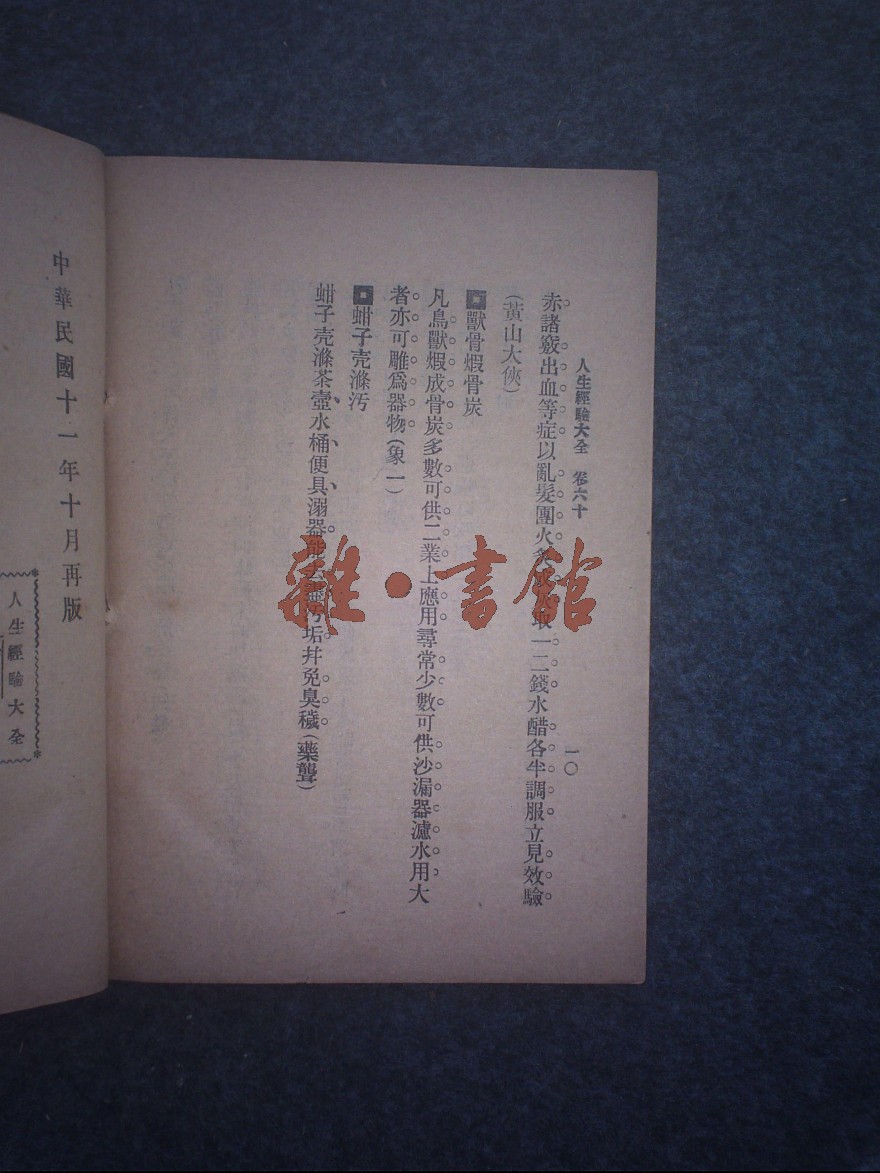 人生經驗大全　卷六十
一〇
赤諸竅出血等症以亂髮團火炙取一二錢水醋各半調服立見效驗
(黃山大俠)
獸骨煆骨炭
凡鳥獸煆成骨炭多數可供工業上應用尋常少數可供沙漏器濾水用大
者亦可雕爲器物(象一)
蚶子壳滌汚
蚶子壳滌茶壺、水桶、便具、溺器能去汚垢幷免臭穢(藥聾)
中華民國十一年十月再版
人生經驗大全
雜·書館